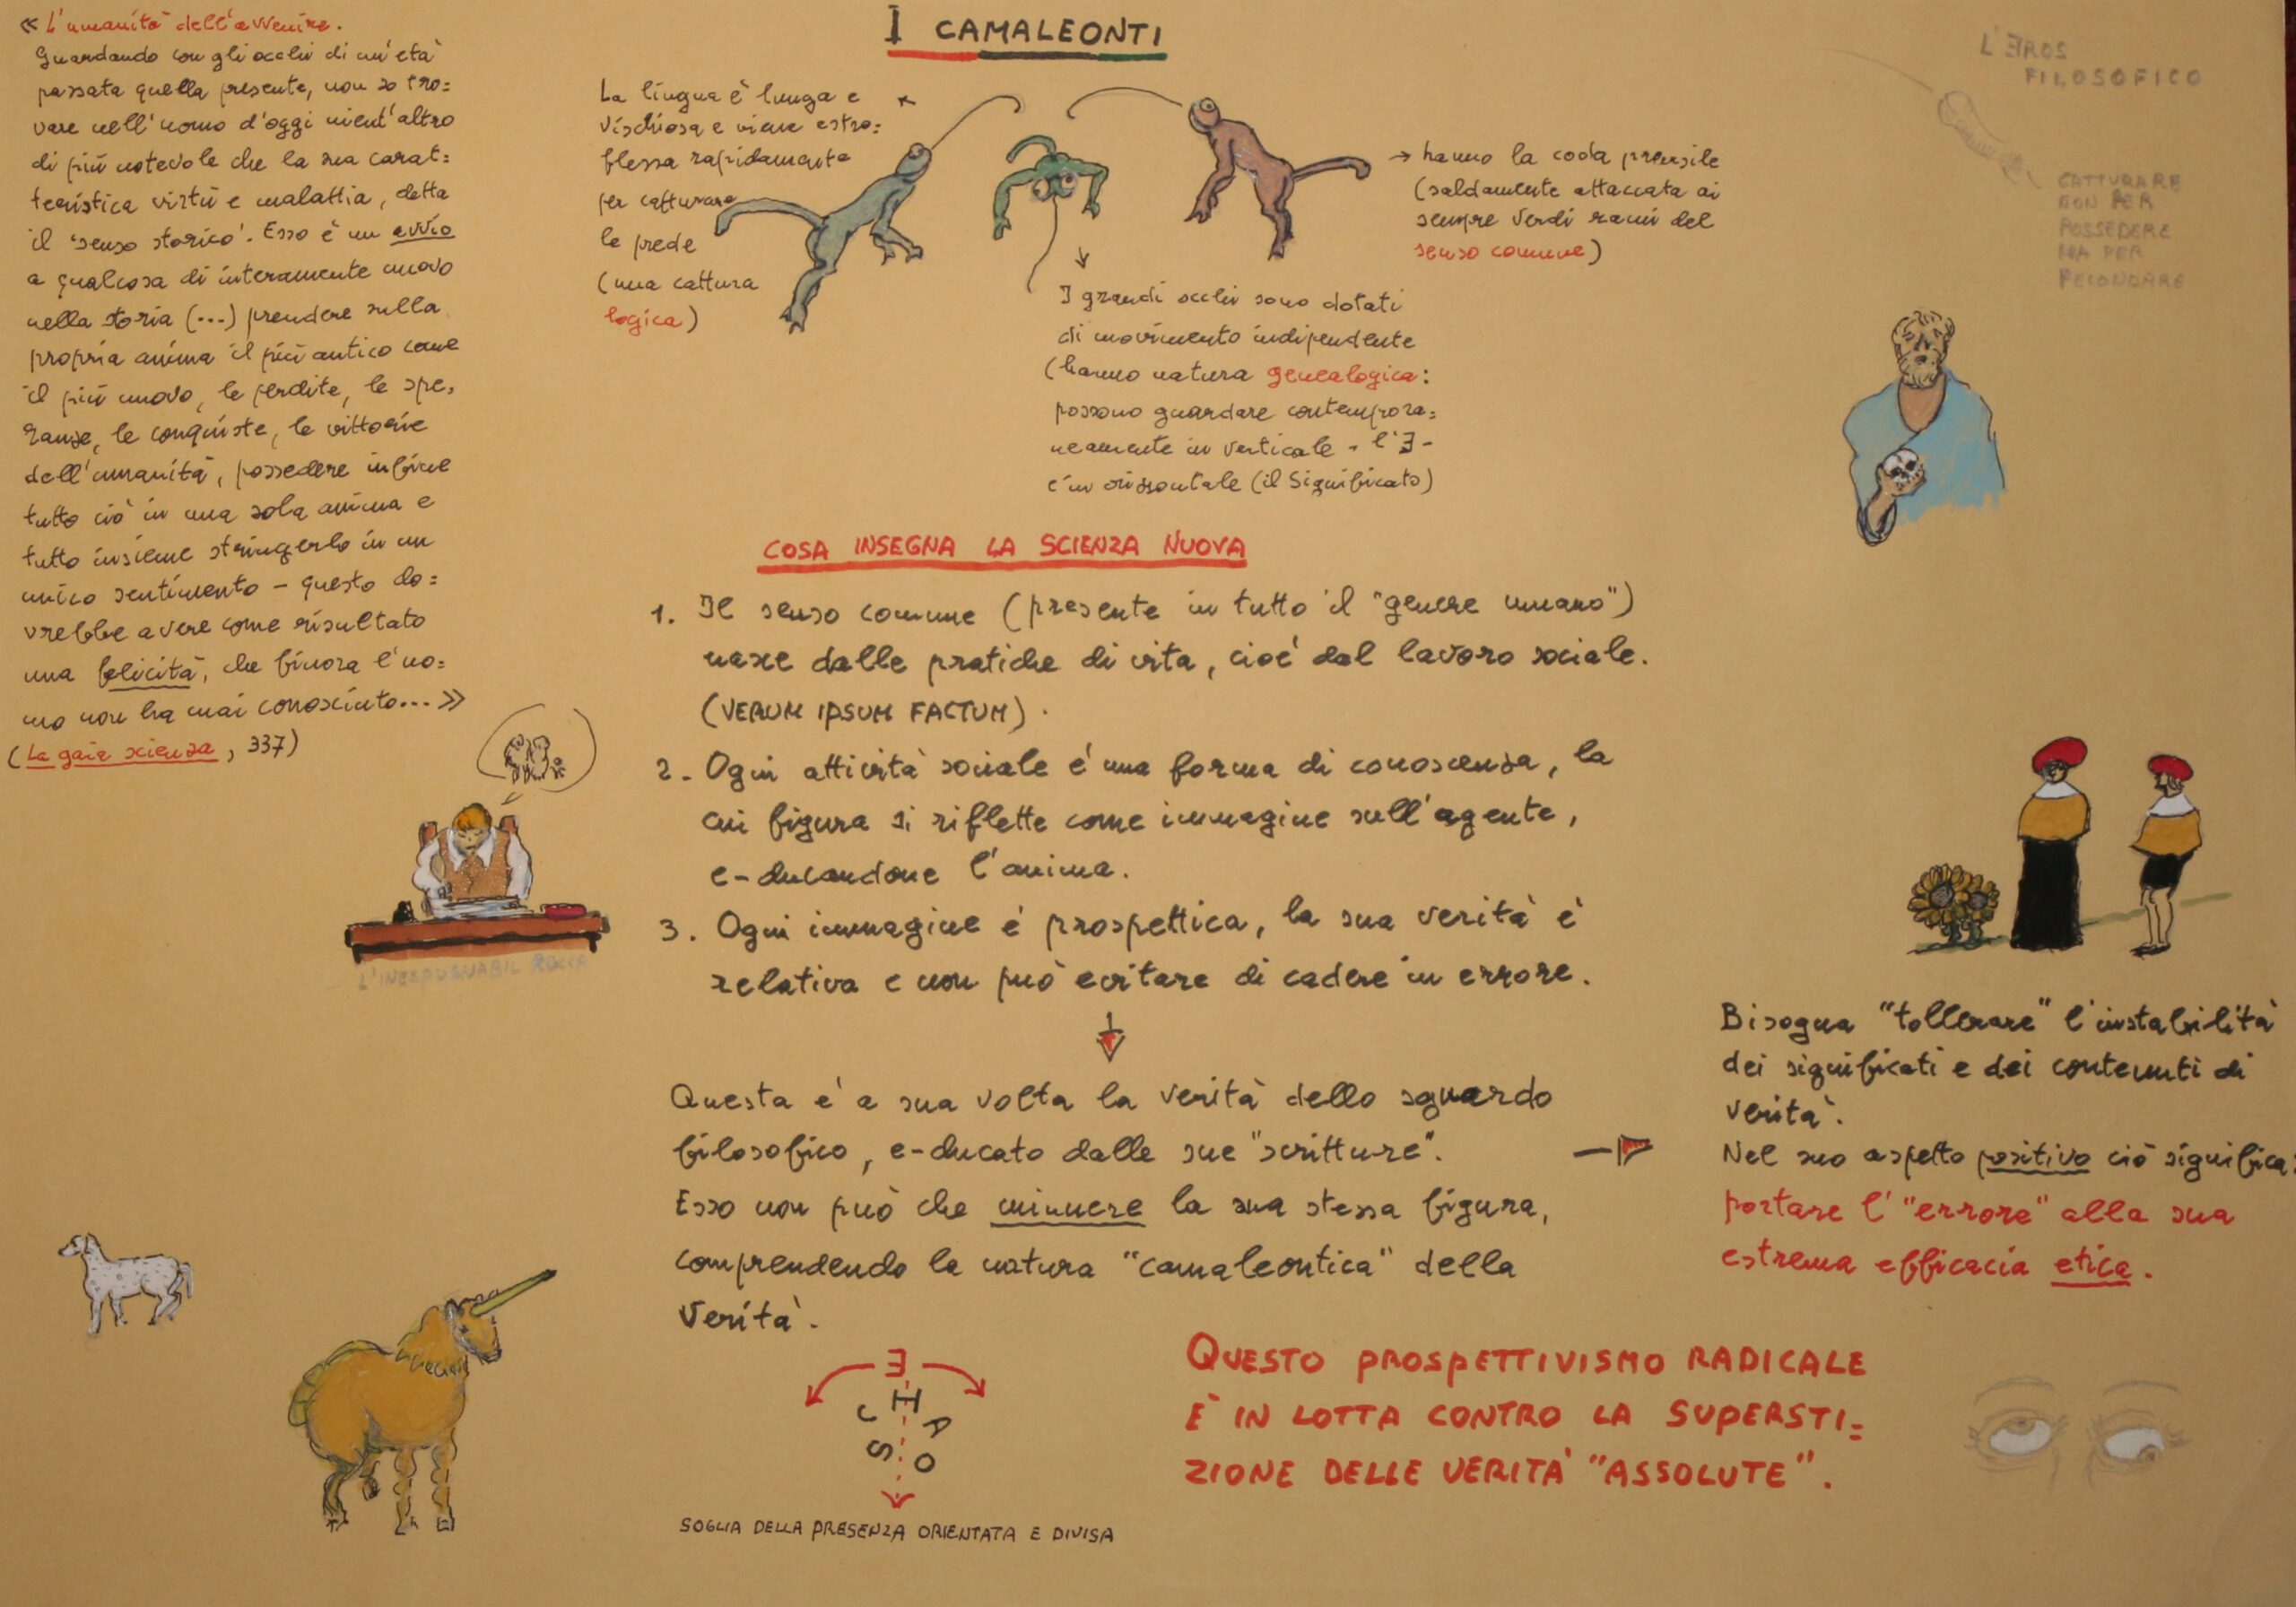 I CAMALEONTI
« L'umanità dell'avvenire.
Guardando con gli occhi di un'età
passata quella presente, non so tro=
vare nell'uomo d'oggi nient'altro
di più notevole che la sua carat=
teristica virtù e malattia, detta
il 'senso storico'. Esso è un avvio
a qualcosa di interamente nuovo
nella storia (...) prendere sulla
propria anima il più antico come
il più nuovo, le perdite, le spe,
ranze, le conquiste, le vittorie
dell'umanità, possedere infine
tutto ciò in una sola anima e
tutto insieme stringerlo in un
unico sentimento – questo do=
vrebbe avere come risultato
una felicità, che finora l'uo=
mo non ha mai conosciuto... »
(La gaia scienza, 337)
L'INESPUGNABIL ROCCA
La lingua è lunga e
vischiosa e viene estro=
flessa rapidamente
per catturare
le prede
(una cattura
logica)
→ hanno la coda prensile
(saldamente attaccata ai
sempre verdi rami del
senso comune)
I grandi occhi sono dotati
di movimento indipendente
(hanno natura genealogica:
possono guardare contempora=
neamente in verticale - l'Ǝ -
e in orizzontale (il Significato)
L'ƎROS
FILOSOFICO
CATTURARE
NON PER
POSSEDERE
MA PER
FECONDARE
COSA INSEGNA LA SCIENZA NUOVA
1. Il senso comune (presente in tutto il "genere umano")
nasce dalle pratiche di vita, cioè dal lavoro sociale.
(VERUM IPSUM FACTUM).
2. Ogni attività sociale è una forma di conoscenza, la
cui figura si riflette come immagine sull'agente,
e-ducandone l'anima.
3. Ogni immagine è prospettica, la sua verità è
relativa e non può evitare di cadere in errore.
Questa è a sua volta la verità dello sguardo
filosofico, e-ducato dalle sue "scritture".
Esso non può che minuere la sua stessa figura,
comprendendo la natura "camaleontica" della
verità.
Bisogna "tollerare" l'instabilità
dei significati e dei contenuti di
verità.
Nel suo aspetto positivo ciò significa:
portare l'"errore" alla sua
estrema efficacia etica.
Ǝ
C H A O S
SOGLIA DELLA PRESENZA ORIENTATA E DIVISA
QUESTO PROSPETTIVISMO RADICALE
È IN LOTTA CONTRO LA SUPERSTI=
ZIONE DELLE VERITÀ "ASSOLUTE".